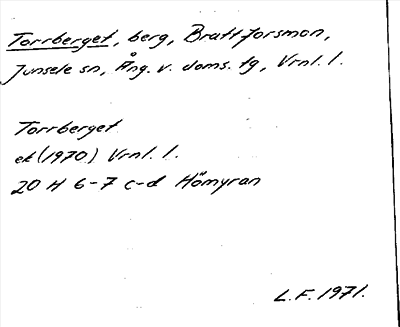 Torrberget, berg, Brattforsmon,
Junsele sn, Ång. v. doms. tg, Vrnl. l.
Torrberget
ek (1970) Vrnl. l.
20 H 6-7 c-d Hömyran
L.F. 1971.